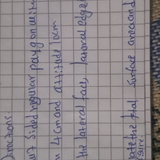 Directions
sided regular polygon with
4cm and altitude 10cm
the lateral face, lateral edge
the total surface area and